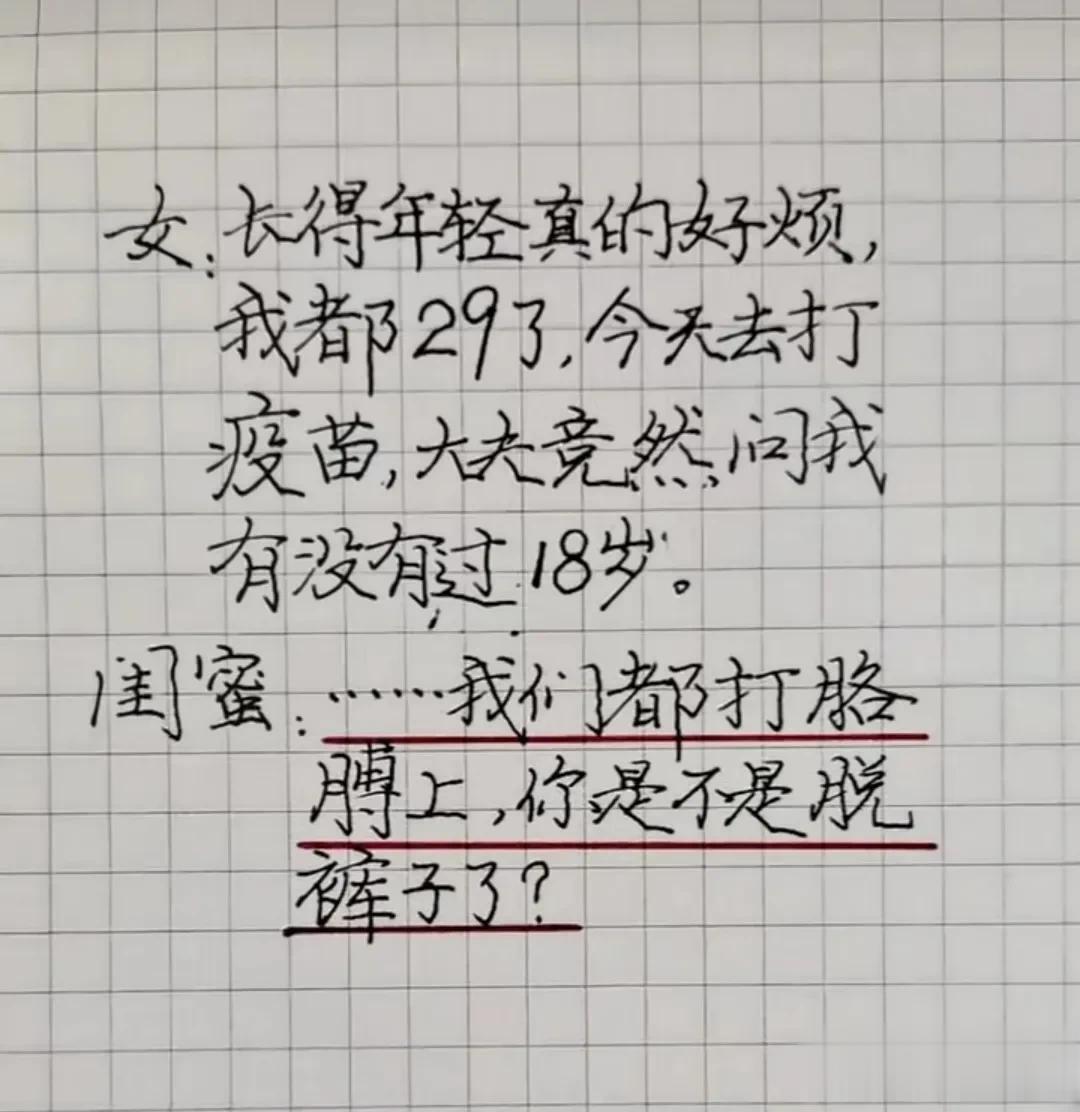 女：长得年轻真的好烦，
我都29了，今天去打
疫苗，大夫竟然问我
有没有过18岁。
闺蜜：……我们都打胳
膊上，你是不是脱
裤子了？